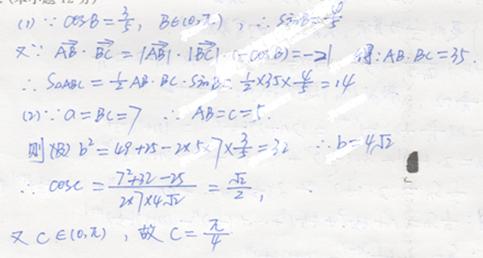 (1) ∵ cosB = 3/5, B∈(0,π), ∴ sinB = 4/5
又∵ AB · BC = |AB| · |BC| · (-cosB) = -21 得: AB·BC = 35.
∴ S△ABC = 1/2 AB · BC · sinB = 1/2 × 35 × 4/5 = 14
(2) ∵ a = BC = 7 ∴ AB = c = 5.
则 b² = 49+25-2×5×7×3/5 = 32 ∴ b = 4√2
∴ cosC = (7²+32-25)/(2×7×4√2) = √2/2,
又 C∈(0,π), 故 C = π/4